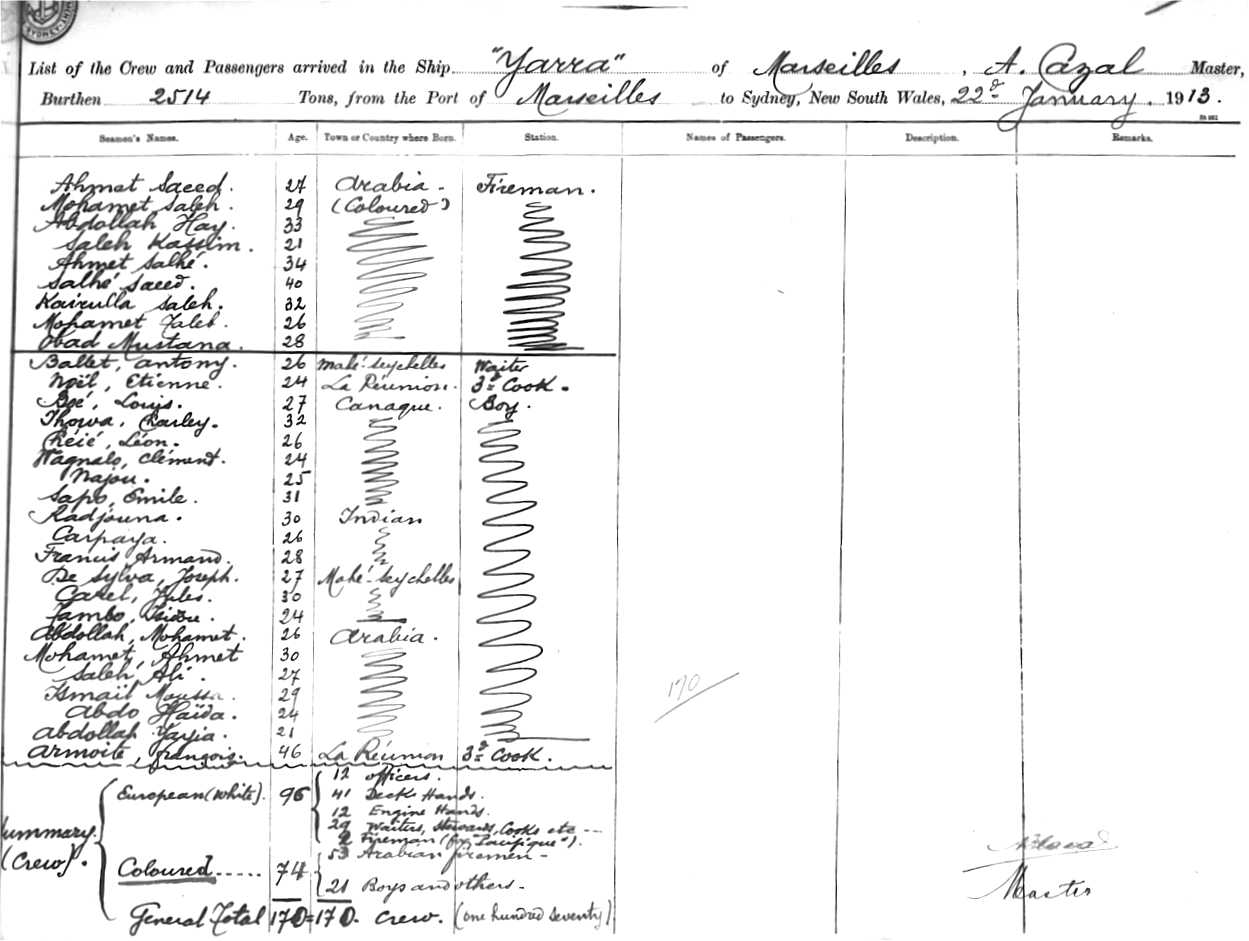 List of the Crew and Passengers arrived in the Ship "Yarra" of Marseilles, A. Cazal Master,
Burthen 2514 Tons, from the Port of Marseilles to Sydney, New South Wales, 22d January. 1913.
Seamen's Names. Age. Town or Country where Born. Station. Names of Passengers. Description. Remarks.
Ahmet Saeed. 27 Arabia - Fireman.
Mohamet Saleh. 29 (Coloured)
Abdollah Hay. 33
Saleh Kassim. 21
Ahmet Salhé. 34
Salhé Saeed. 40
Kairulla Saleh. 32
Mohamet Taleb. 26
Obad Mustana. 28
Ballet, Antony. 26 Mahé-Seychelles Waiter
Noël, Etienne. 24 La Réunion. 3d Cook.
Boé, Louis. 27 Canaque. Boy.
Thowa, Charley. 32
Chéié, Léon. 26
Wagnalo, Clément. 24
Najou. 25
Sapo, Emile. 31
Radjouna. 30 Indian
Carpaya. 26
Francis Armand. 28
De Sylva, Joseph. 27 Mahé-Seychelles
Carel, Jules. 30
Jambo, Isidore. 24
Abdollah, Mohamet. 26 Arabia.
Mohamet, Ahmet 30
Saleh, Ali. 27
Ismaïl Moussa. 29
Abdo Haïda. 24
170
Abdollah Yayia. 21
Armoite, François. 46 La Réunion 3d Cook.
Summary (Crew).
European (White). 96
12 Officers.
41 Deck Hands.
12 Engine Hands.
29 Waiters, Stewards, Cooks etc --
2 Fireman (for "Pacifique").
Coloured ..... 74
53 Arabian firemen -
21 Boys and others -
General Total 170 = 170. Crew. (one hundred seventy)
Master